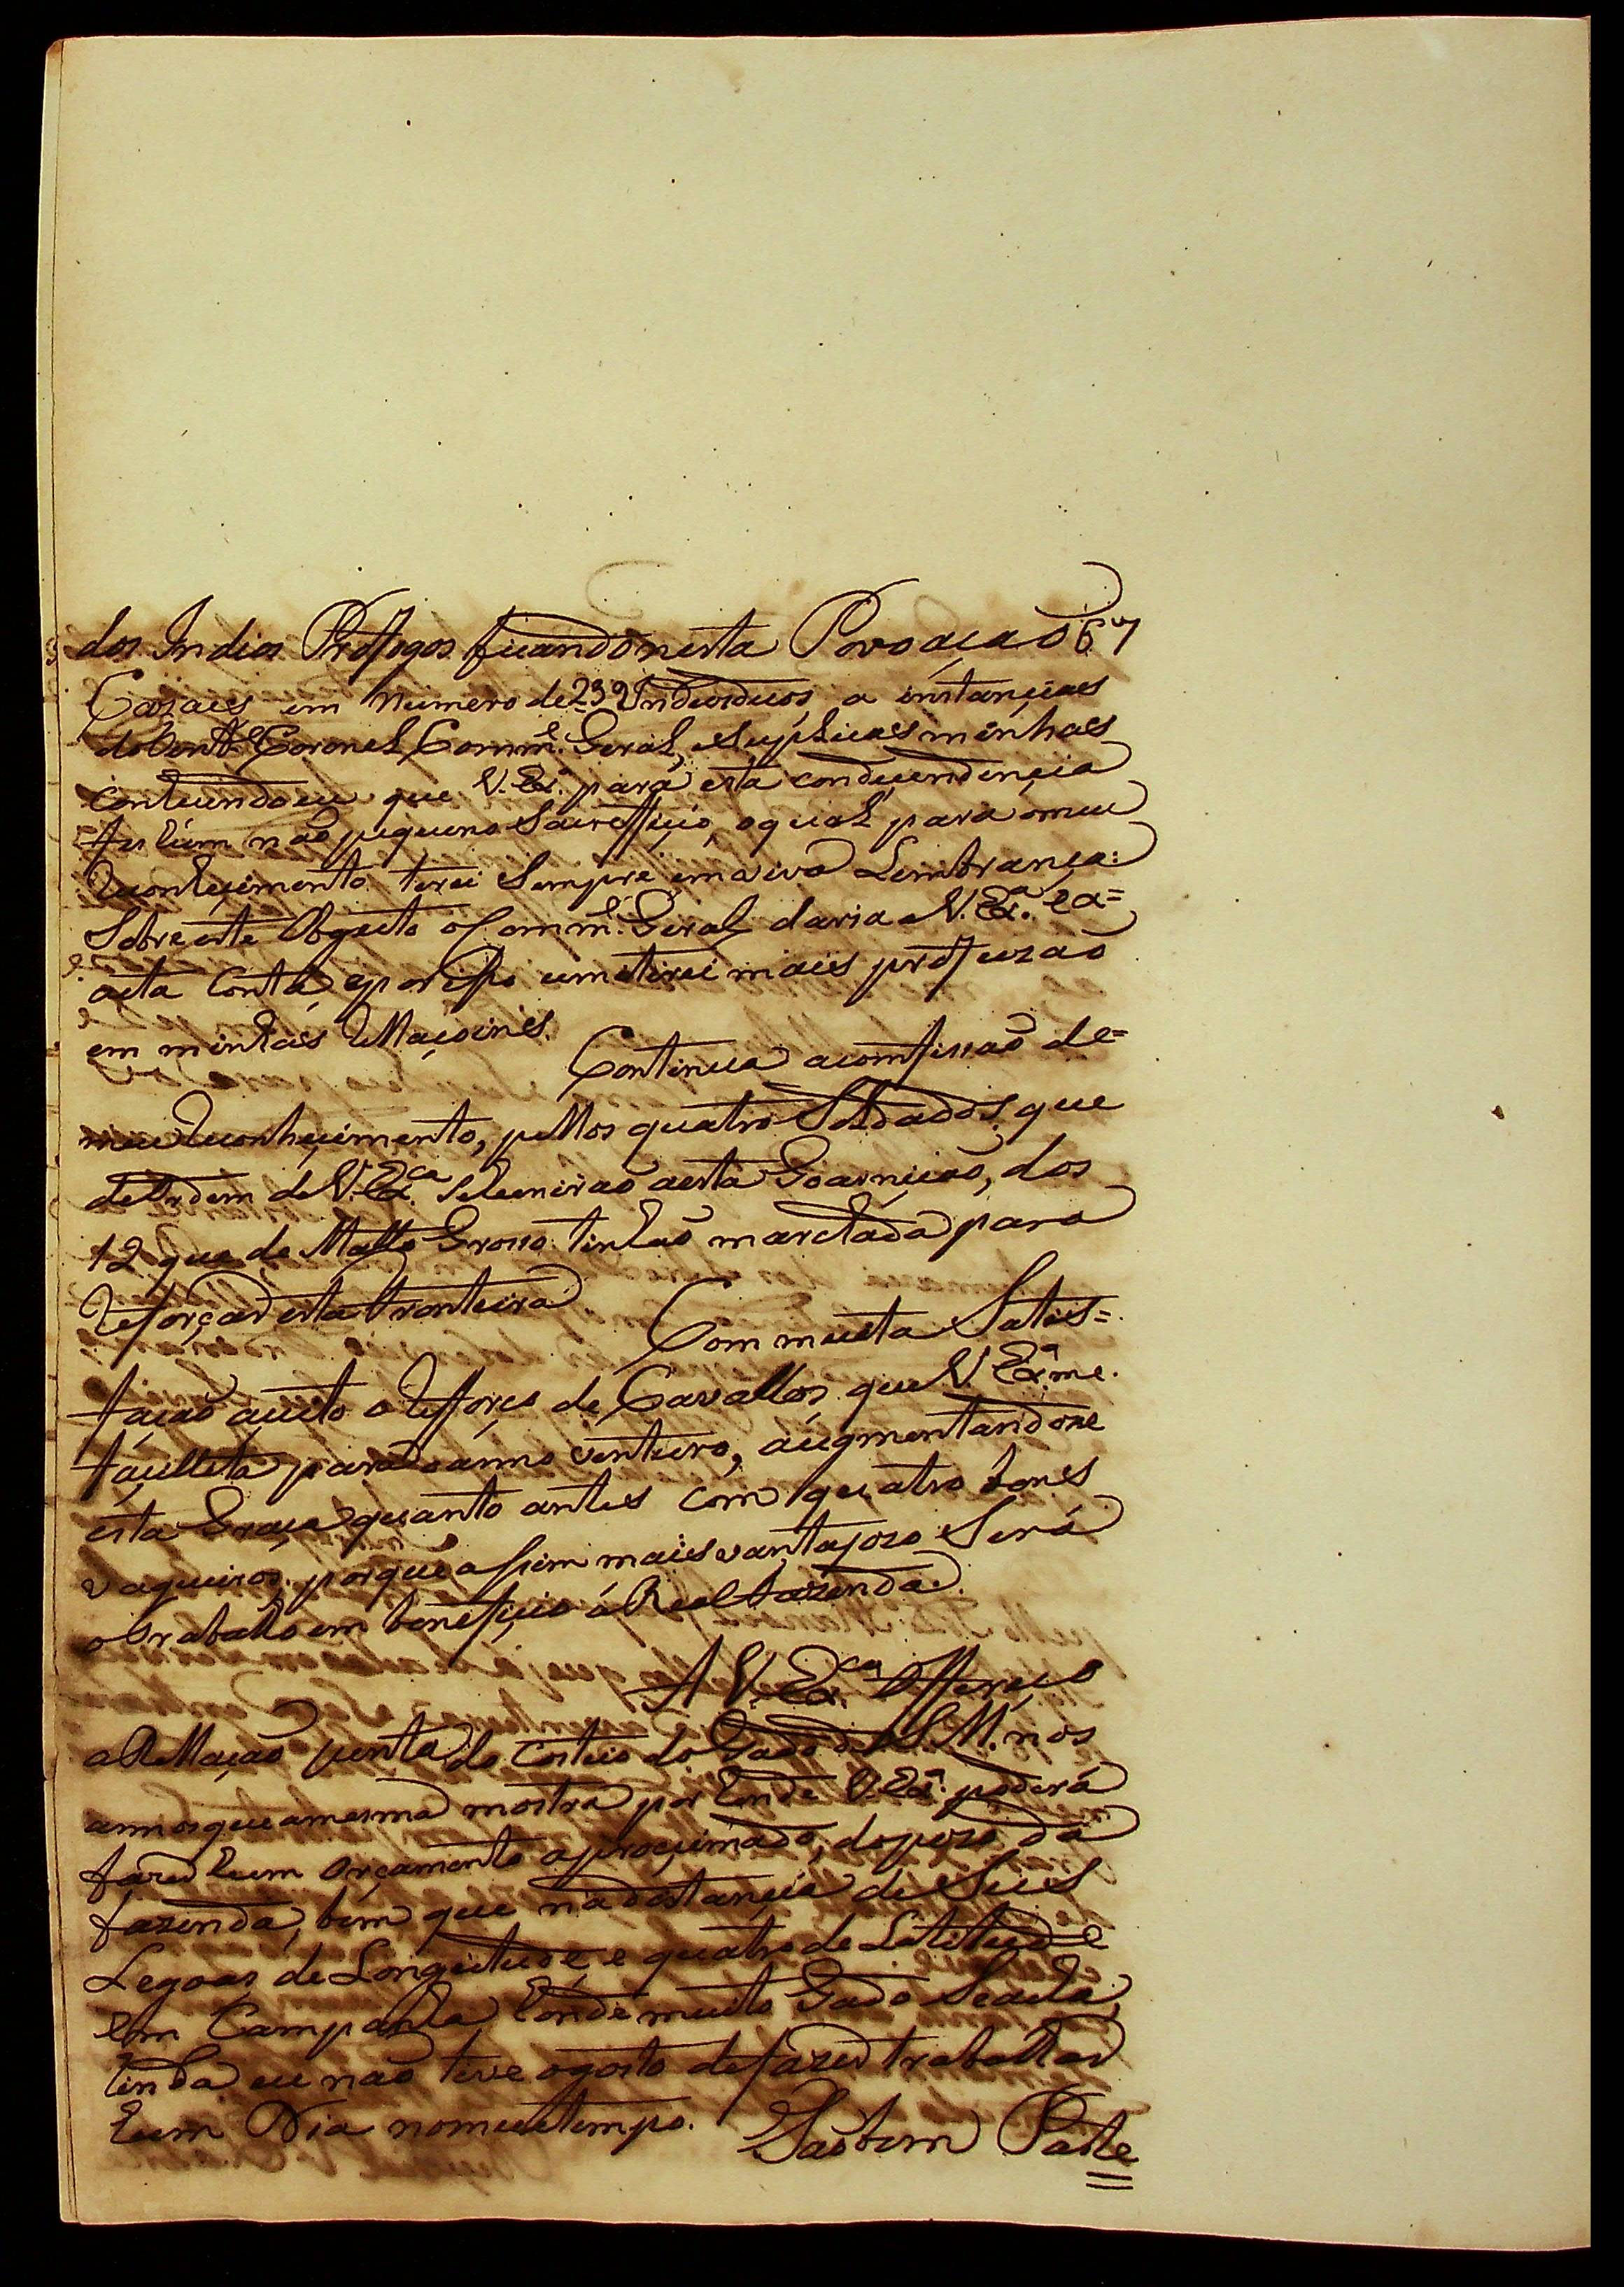 dos Indios Proffogos ficando nesta Povoação 67
Cazaes em numero de 239 Indeviduos, a instançiaes
do Cont.e Coronel Comm.e Geral, e Suplicaes minhaes
conheundo eu que V. Ex.a para esta conduendençia
fes hum não piqueno Sacreffiçio, o qual para o meu
Reconheçimento terei Sempre em a viva Lembrança:
Sobre este Obgecto o Comm.e Geral daria a V. Ex.a ex=
acta Conta, e por isso remeterei mais proffuzão
em minhaes Rellaçoines.
Continua a comfissão de=
meu Reconheçimento, pellos quatro Soldados, que
de Ordem de V. Ex.ca se reunirão a esta Goarnição, dos
12 que de Matto Grosso tinhão marchado para
Reforçar esta Fronteira
Com muita Satis=
façaõ açeito o Refforço de Cavallos, que V. Ex.a me
façulleta para o anno venturo, augmentandome
esta Graça quanto antes com quatro bons
vaqueiros, porque assim mais vantajozo Será
o Trabalho em benefiçio á Real Fazenda.
A V. Ex.ca Offereço
a Rellação junta do Costeio do Gado de S. M. nos
annos que a mesma mostra por honde V. Ex.a poderá
fazer hum Orçamento aproçimado, do pozo da
fazenda, bem que na distançia de Seis
Legoas de Longitude, e quatro de Latitude
em Campanha, honde muito Gado Seacha,
hinda eu não tive o gosto de fazer trabalhar
hum Dia no meu tempo.
São bem Parte